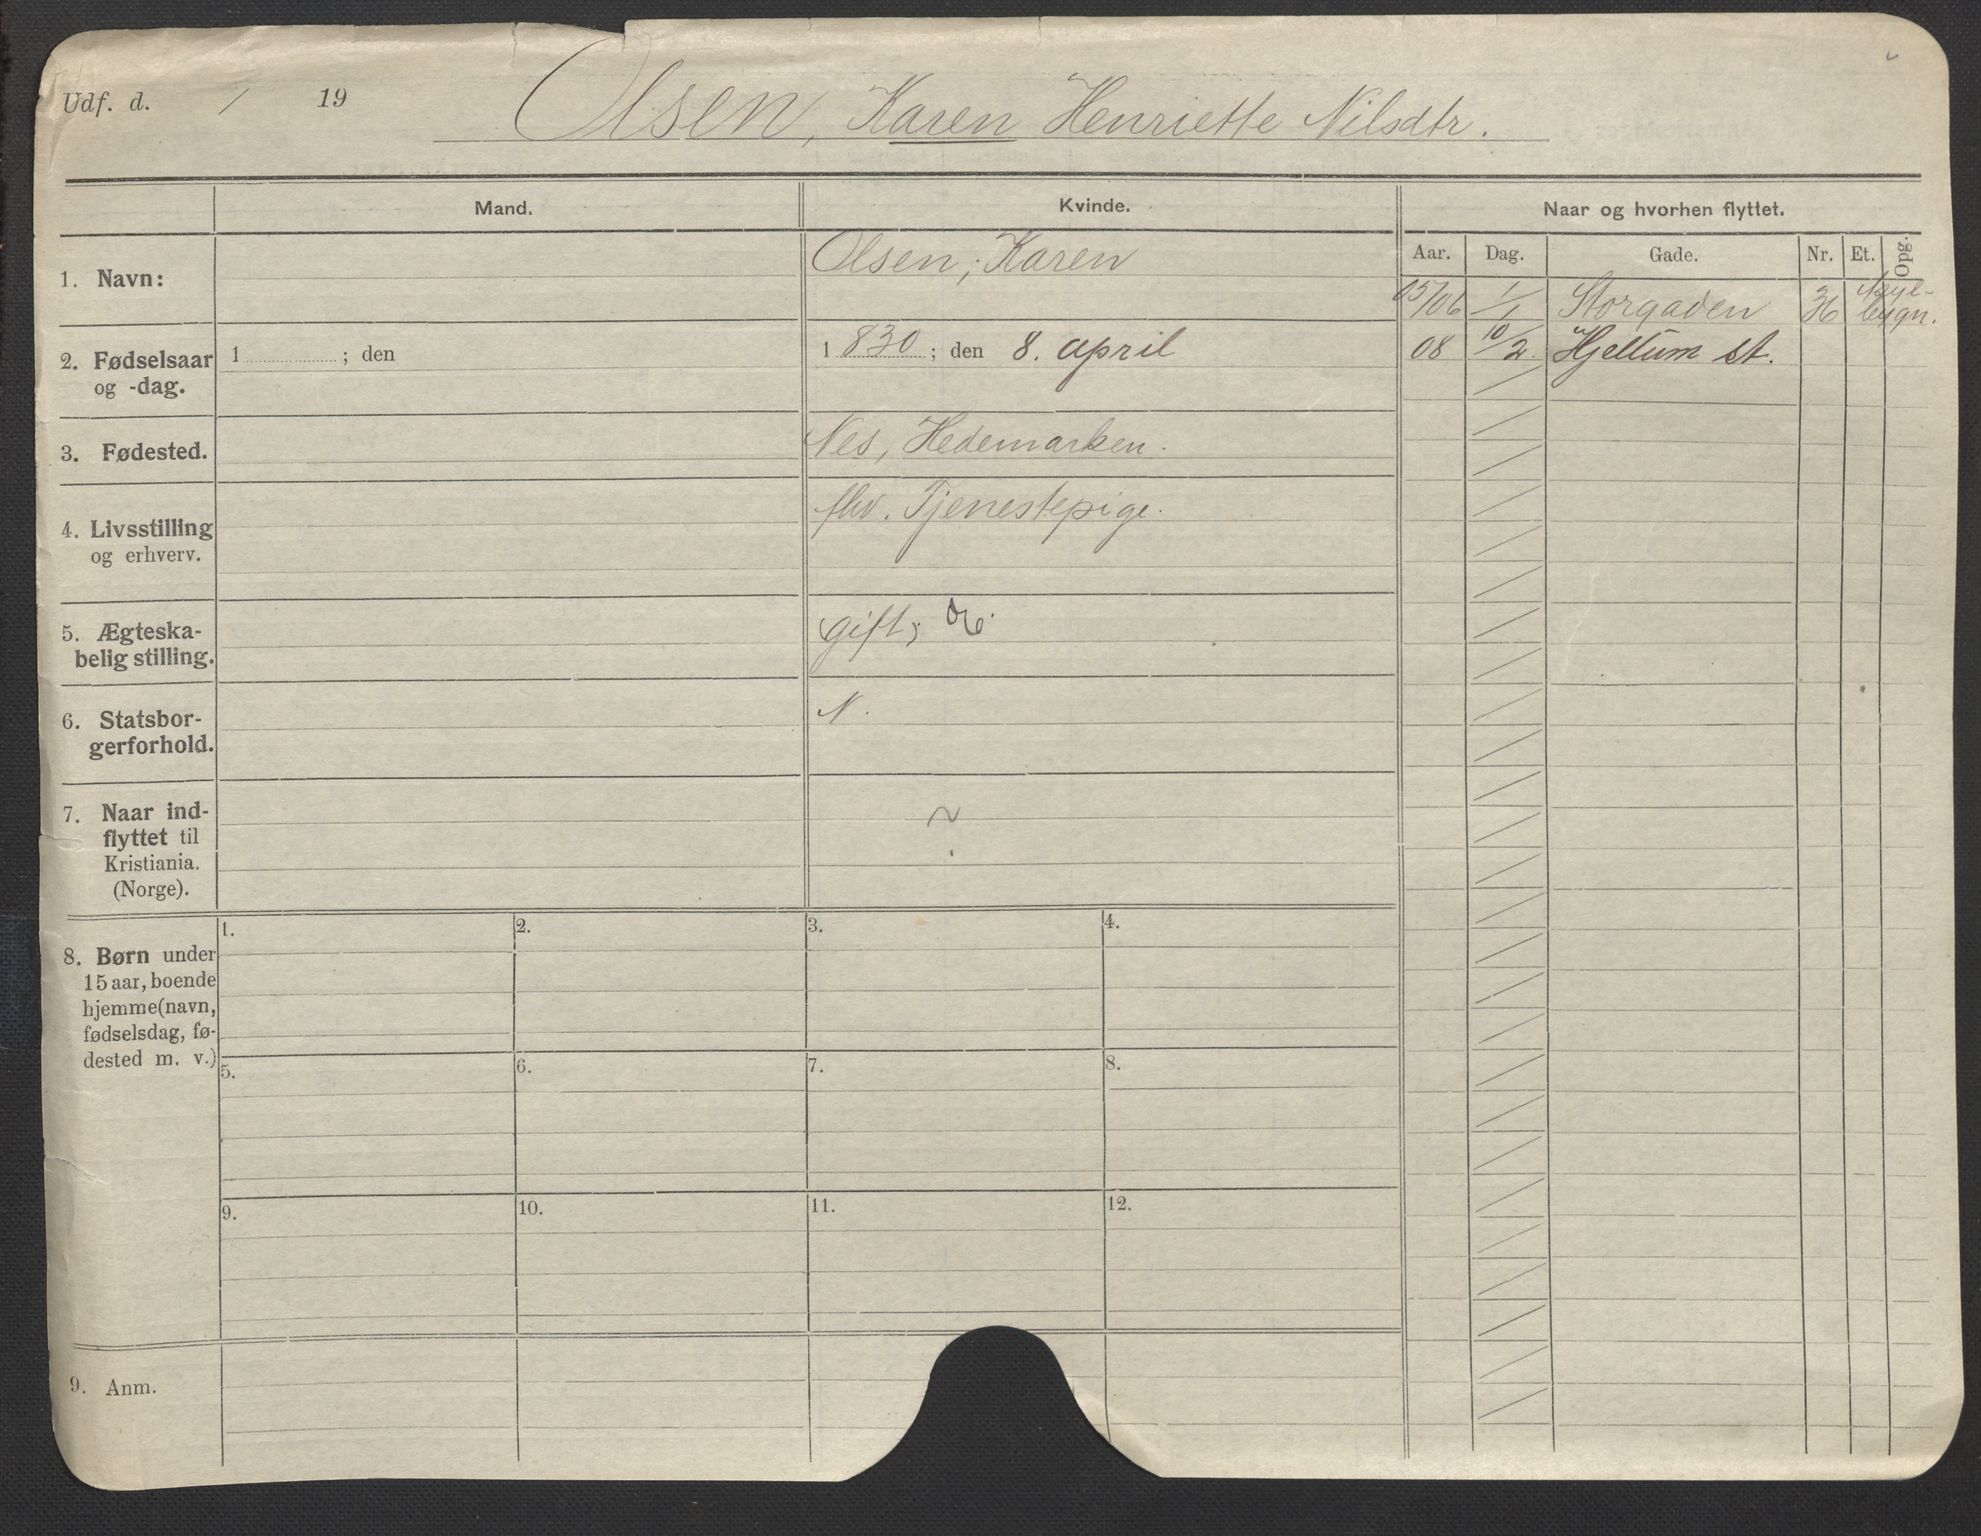 Udf. d. / 19
Olsen, Karen Henriette Nilsdtr.
Mand.
Kvinde.
Naar og hvorhen flyttet.
Aar. Dag. Gade. Nr. Et. Opg.
1. Navn:
Olsen, Karen
05/06 1/1 Storgaden 36
bygn.
2. Fødselsaar
og -dag.
1 ; den
1 830 ; den 8. april
08 10/2 Hjellum st.
3. Fødested.
Nes, Hedemarken.
4. Livsstilling
og erhverv.
fhv. Tjenestepige.
5. Ægteska-
belig stilling.
gift;
6. Statsbor-
gerforhold.
N.
7. Naar ind-
flyttet til
Kristiania.
(Norge).
?
8. Børn under
15 aar, boende
hjemme (navn,
fødselsdag, fø-
dested m. v.)
1. 2. 3. 4.
5. 6. 7. 8.
9. 10. 11. 12.
9. Anm.